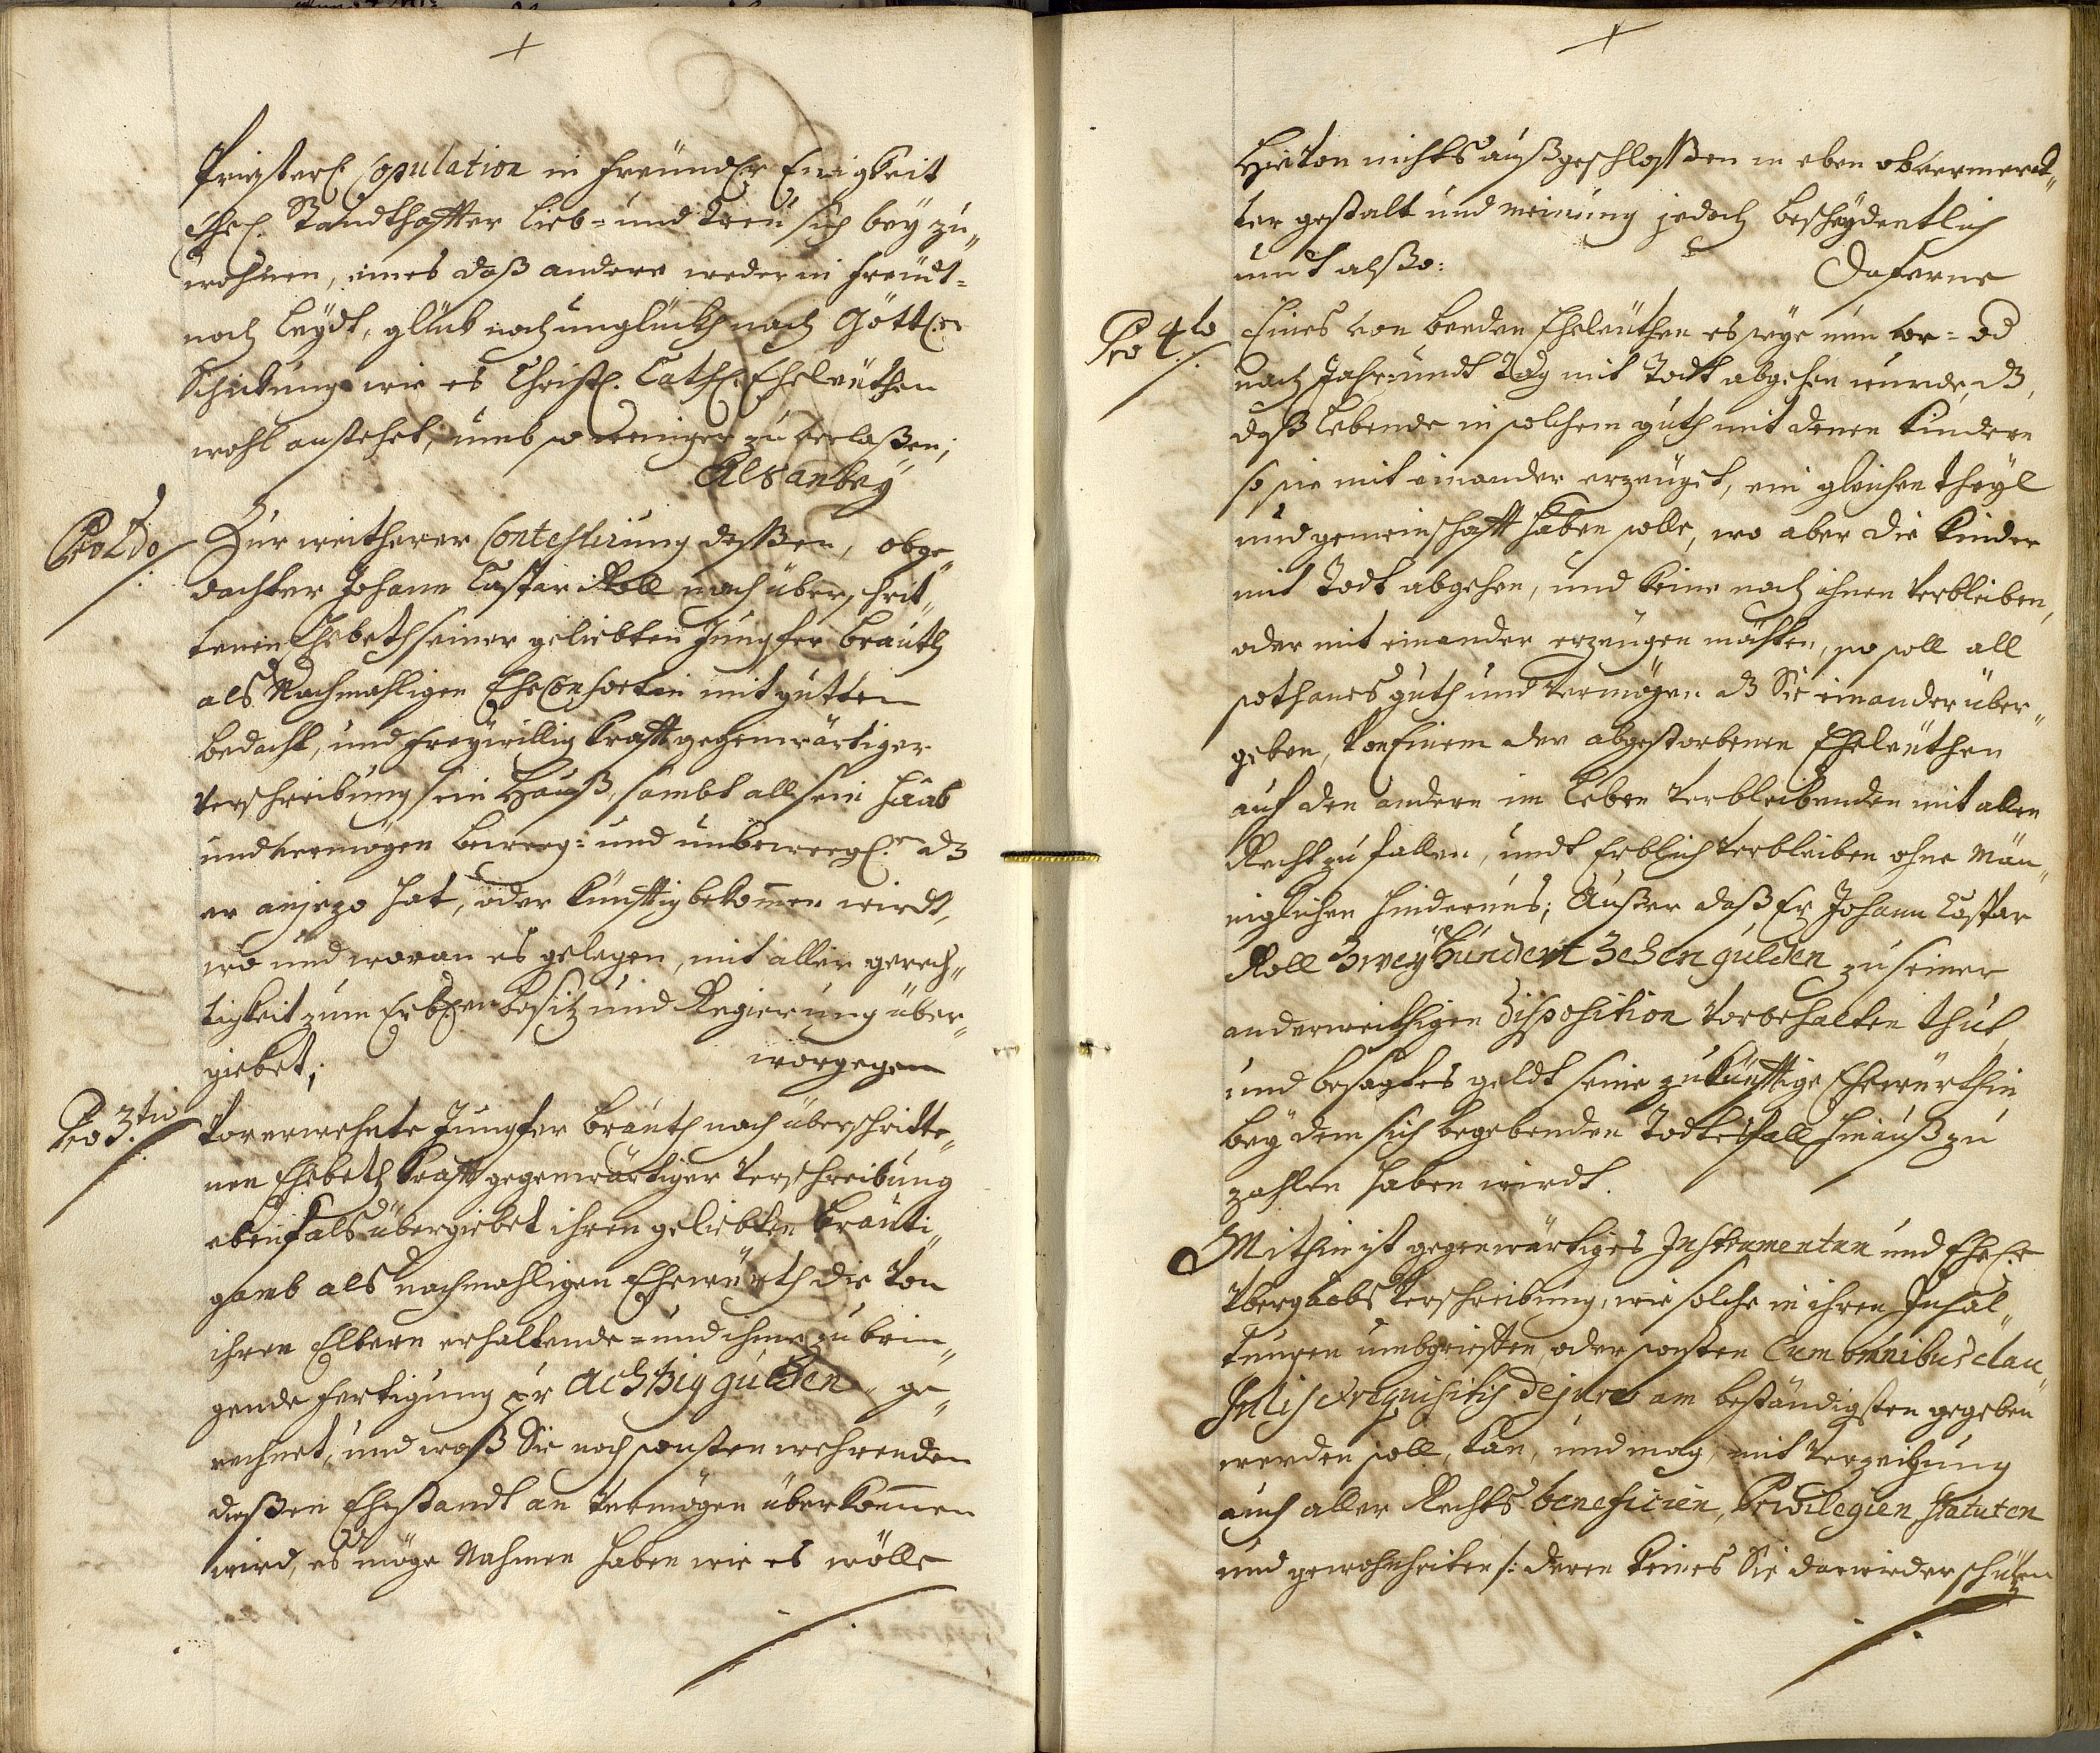 Priesterl. Copulation in freündtl. Einigkeit
Ehel. Standthaffter lieb= und Treü sich bey zu„
wohnen, eines daß andere weder in freüdt=
noch leydt, glück noch unglückh nach Göttl.er
Schickung wie es Christl. Cathl. Eheleüthen
wohl anstehet, umb so weniger zu verlaßen;
Als anbey
Pro 2do Zur weitherer Contestirung deßßen, obge„
dachter Johann Caspar Roll nach überschrit„
tenen Ehebeth seiner geliebten Jungfer brauth
als Nachmahligen EheConsortin mit gutten
bedacht, und freywillig krafft gegenwärtiger
verschreibung sein Hauß, sambt all sein Haab
und vermögen beweg: und unbewegl.en dz
er anjezo hat, oder künfftig bekom̅en wirdt,
wo und woran es gelegen, mit aller gerech„
tigkeit zum Erbl.en besitz und Regierung über„
giebet; worgegen
Pro 3.tio Vorerwehnte Jungfer brauth nach überschritte„
nen Ehebeth krafft gegenwärtiger verschreibung
ebenfals übergiebet ihren geliebten bräuti„
gamb als nachmahligen Ehewürth die von
ihren Eltern erhaltende= und ihme zu brin„
gende fertigung pr Achtzig gulden ge„
rechnet; und waß Sie noch sonsten wehrenden
dießen Ehestandt an vermögen überkom̅en
wird, es möge Nahmen haben wie es wölle
Hievon nichts außgeschloßßen in eben obvermerck„
ter gestalt und meinung jedoch bescheydentlich
undt alßo: Daferne
Pro 4to Eines von beeden Eheleüthen es seye nun vor= od
nach Jahr= undt Tag mit Todt abgehen wurde, dz
daß lebende in solchem guth mit denen kindern
so sie mit einander erzeüget, ein gleichen theyl
und gemeinschafft haben solle, wo aber die kinder
mit Todt abgehen, und keine nach ihnen verbleiben,
oder mit einander erzeügen möchten, so soll all
sothanes guth und vermögen dz Sie einander über„
geben, von Einem der abgestorbenen Eheleüthen
auf den andern im leben verbleibenden mit allen
Recht zu fallen, undt Erblich verbleiben ohne Män„
niglichen Hindernus; Außer daß Er Johann Caspar
Roll Zweyhundert Zehen gulden zu seiner
anderweithigen Disposition vorbehalten thut,
und besagtes geldt seine zukünfftige Ehewürthin
bey dem sich begebenden Todtesfall hinauß zu
zahlen haben wirdt.
Mithin ist gegenwärtiges Instrumentum und Ehel.e
Vbergaabs Verschreibung, wie solche in ihren Inhal„
tungen umbgriffen, oder sonsten Cum omnibus clau„
sulis et requisitis de jure am beständigsten gegeben
werden soll, kan, und mag, mit verzeihung
auch aller Rechts beneficien, Privilegien statuten
und gewohnheiten /: deren keines Sie darwieder schützen